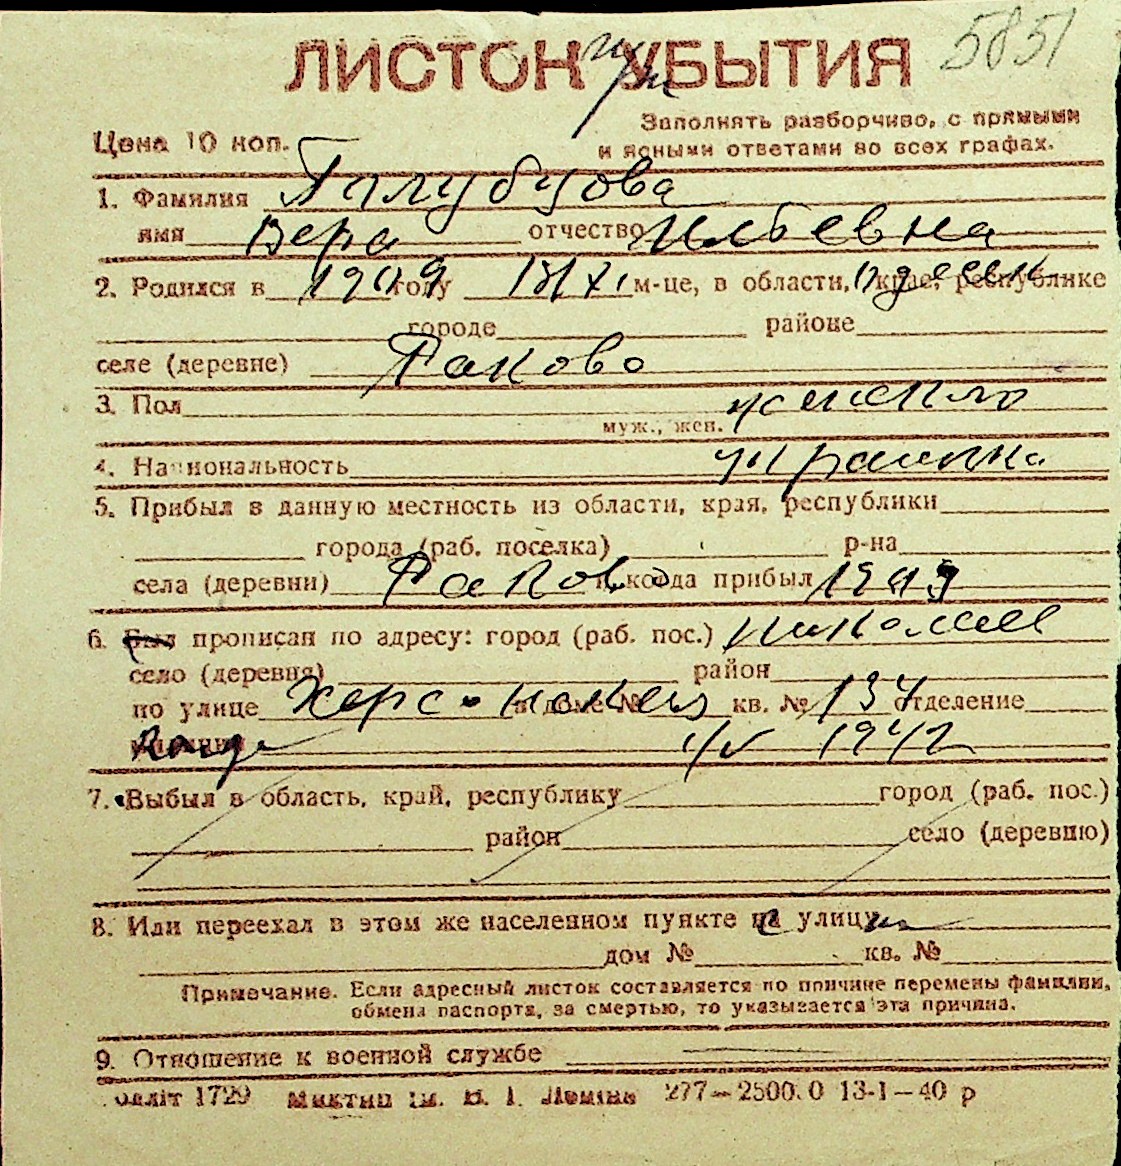 5851
ЛИСТОК УБЫТИЯ
Цена 10 коп.
Заполнять разборчиво, с прямыми
и ясными ответами во всех графах.
1. Фамилия Голубцова
имя Вера отчество Ильевна
2. Родился в 1909 году 18/XI м-це, в области, крае, республике
городе районе
селе (деревне) Раково
3. Пол женский
муж., жен.
4. Национальность украинка
5. Прибыл в данную местность из области, края, республики
города (раб. поселка) р-на
села (деревни) Раково и когда прибыл 1909
6. Был прописан по адресу: город (раб. пос.) Николаев
село (деревня) район
по улице Херсонская в доме № кв. № 134 отделение
1/V 1942
7. Выбыл в область, край, республику город (раб. пос.)
район село (деревню)
8. Или переехал в этом же населенном пункте на улицу
дом № кв. №
Примечание. Если адресный листок составляется по причине перемены фамилии,
обмена паспорта, за смертью, то указывается эта причина.
9. Отношение к военной службе
олліт 1729 ім. В. І. Леніна 277—2500.0 13-1—40 р